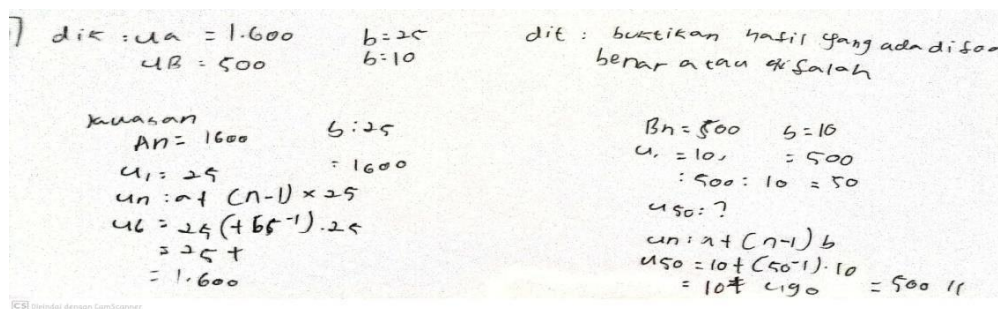 dik : ua = 1.600 b = 25
uB = 500 b : 10
dit : buktikan hasil yang ada di soa
benar atau di salah
Jawaban
An = 1600 b : 25
u₁ = 25 = 1600
un : a + (n-1) × 25
= 25 +
= 1.600
Bn = 500 b = 10
u₁ = 10, = 500
: 500 : 10 = 50
u50 : ?
un : a + (n-1) b
u50 = 10 + (50-1) . 10
= 10 + 490 = 500 //
CS Dipindai dengan CamScanner